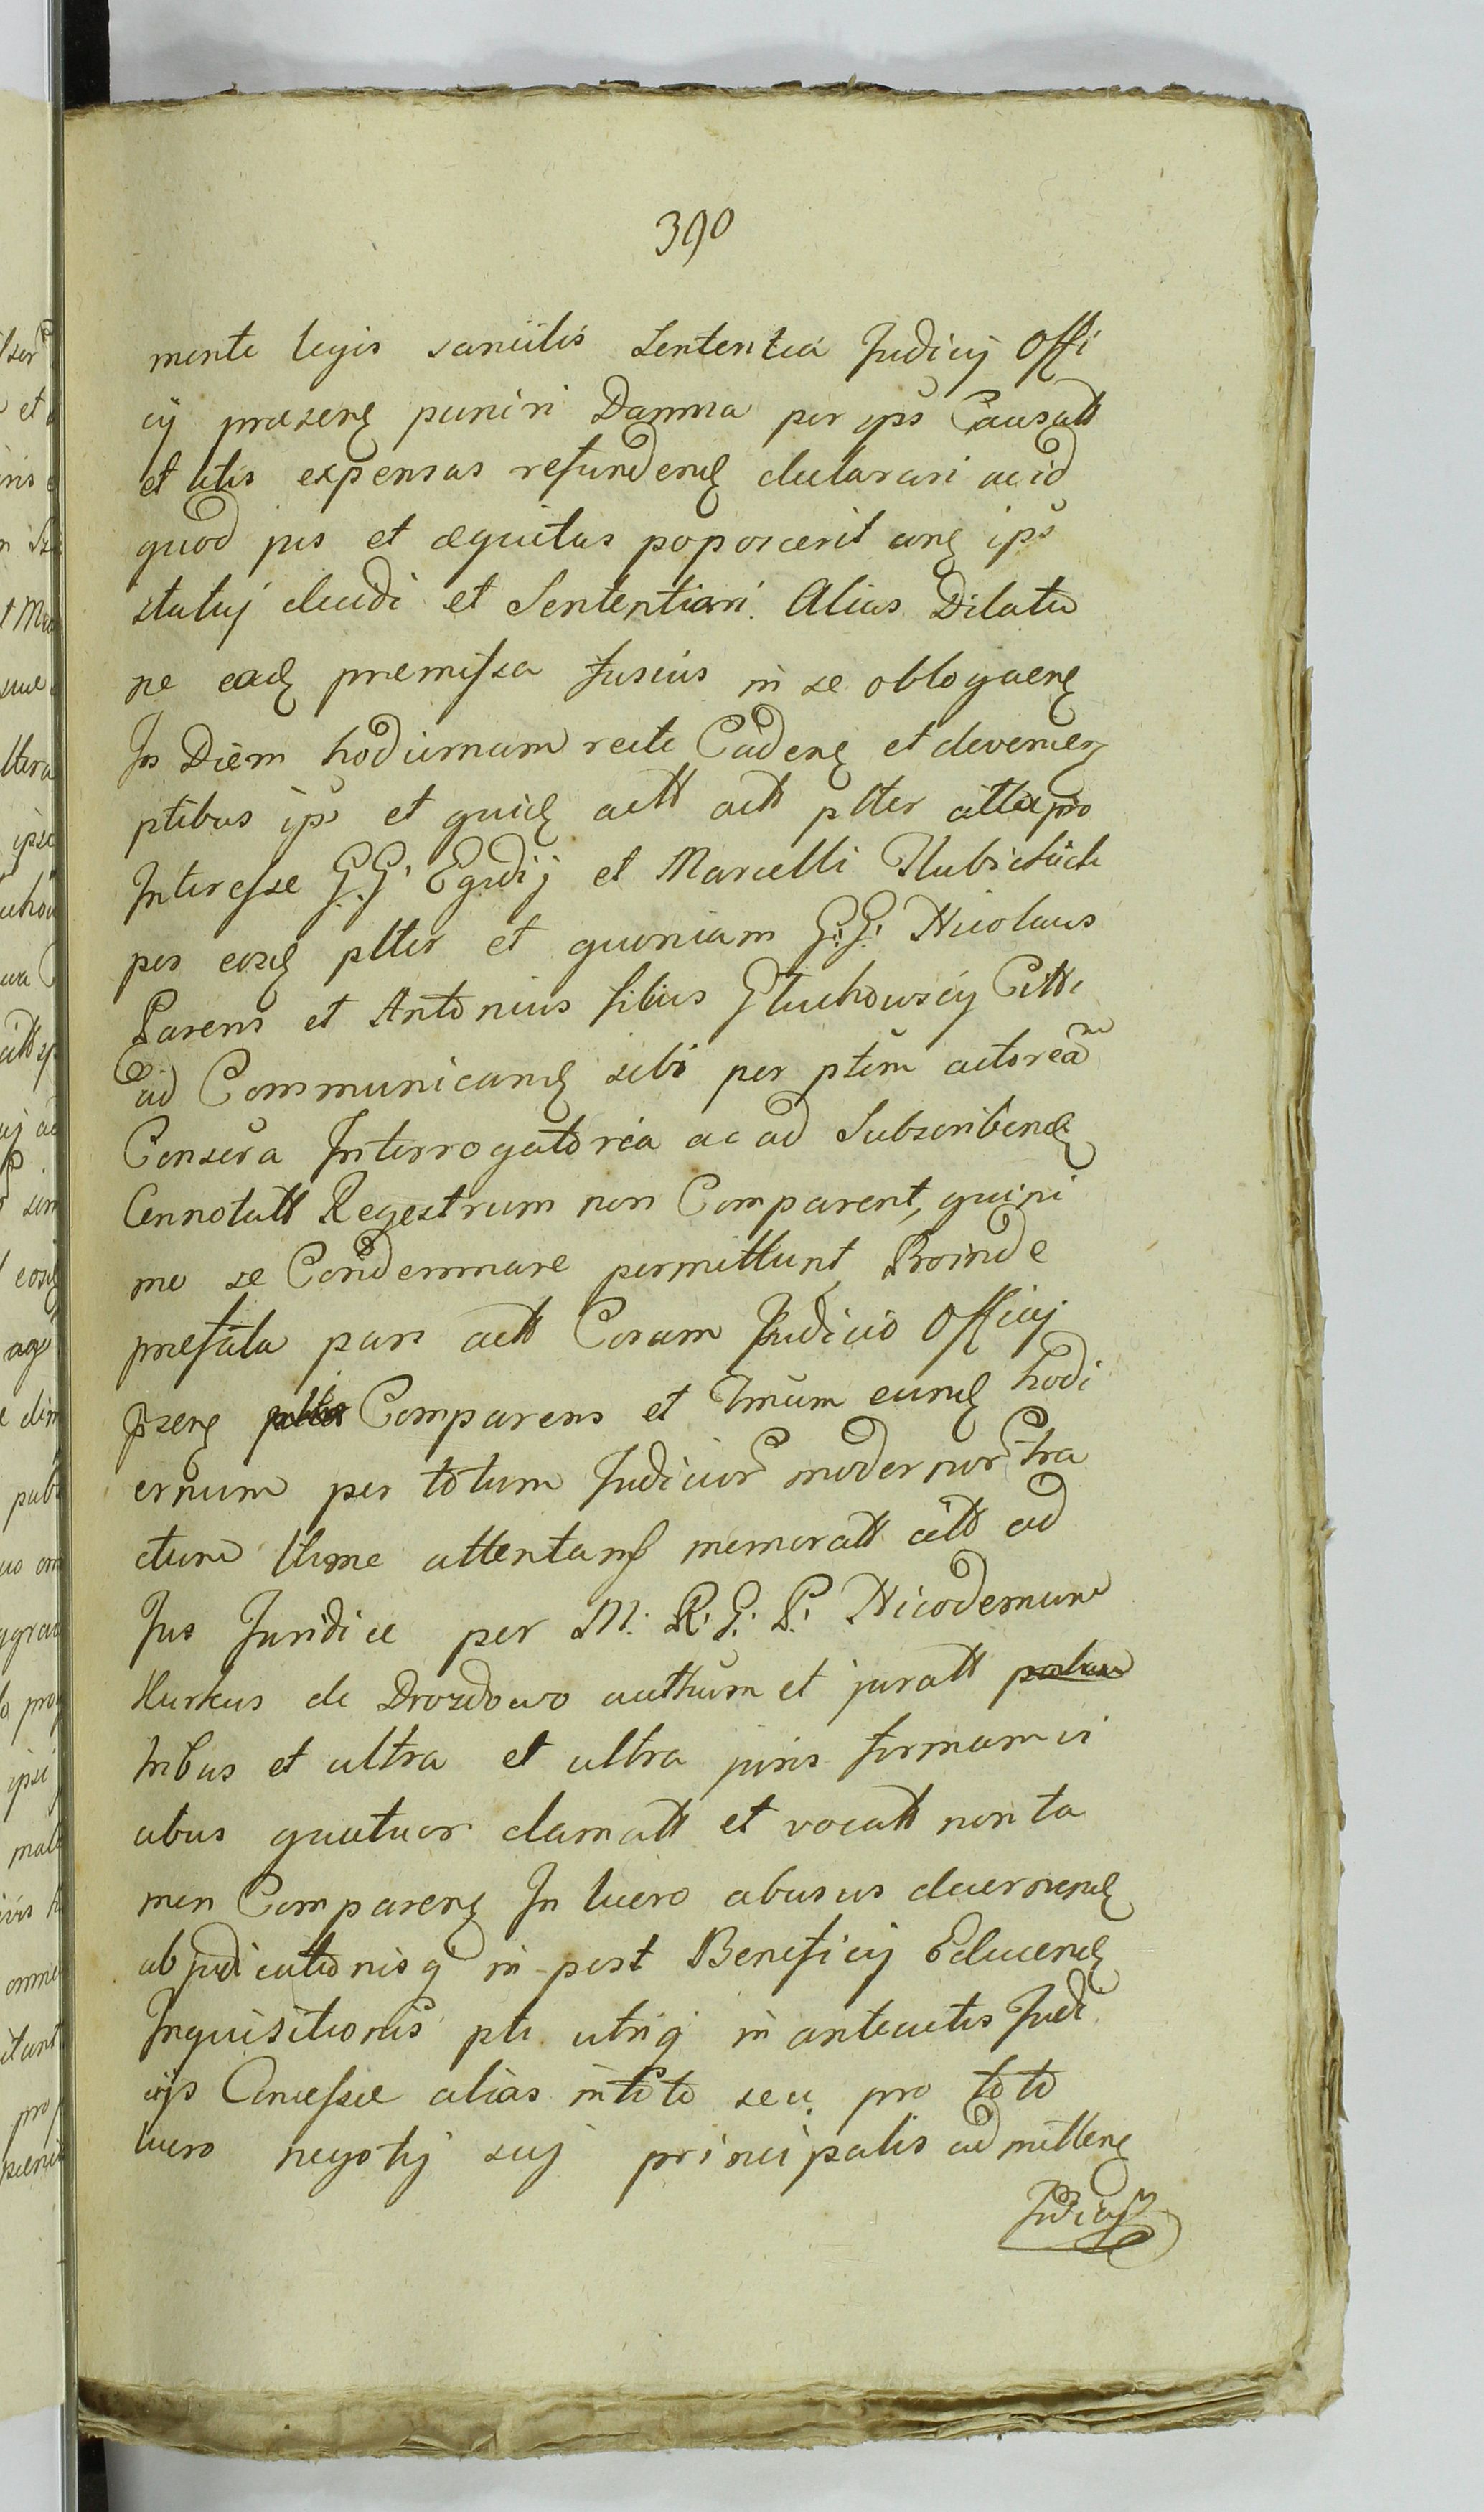 390
mente legis sancitis Sententia Judicij Offi
cij praesenε puniri Damna per ips Causatt
et litis expensas refundendε declarari ac id
quod jus et aequitas poposcerit conε ips
statuj decidi et Sententiari. Alias Dilatio
ne eadε premissa fusius in se obloquenε
In Diem hodiernam recte Cadenε et devenienε
ptibus ips et quidε actt actt plter citta pro
Interesse G.G. Egidij et Marcelli
per eosdε plter et quoniam G.G. Nicolaus
Parens et Antonius filius Głuchowscij Citti
ad Communicandε sibi per ptem actoream
Conscra Interrogatoria ac ad Subscribendε
Connotatt Regestrum non Comparent, quini
mo se Condemnare permittunt, Proinde
praefata pars actt Coram Judicio Officij
pzenε Comparens et Trnum eundε hodi
ernum per totum Judicior modernor tra
ctum ltime attentans memoratt citt ad
Jus Juridice per M. R. G. P. Nicodemum
Kurkus de Drozdowo authum et juratt
tribus et ultra et ultra juris formam vi
cibus quatuor clamatt et vocatt non ta
men Comparenε In lucro abusus decernendε
abjudicationisq in post Beneficij Educendε
Inquisitionis pti utriq in anteactis Judi
cijs Concessae alias in toto seu pro toto
lucro negotij suj principalis admittenε
Judicij